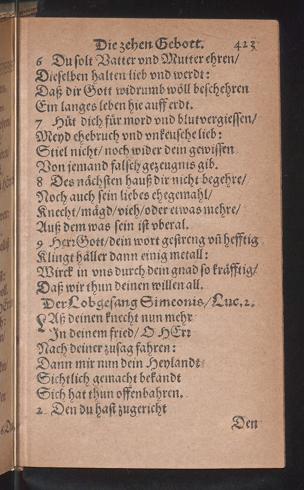 Die zehen Gebott. 423
6 Du solt Vatter vnd Mutter ehren/
Dieselben halten lieb vnd werdt:
Daß dir Gott widrumb wöll beschehren
Ein langes leben hie auff erdt.
7 Hüt dich für mord vnd blutvergiessen/
Meyd ehebruch vnd vnkeusche lieb:
Stiel nicht/ noch wider dein gewissen
Von jemand falsch gezeugnis gib.
8 Des nächsten hauß dir nicht begehre/
Noch auch sein liebes ehegemahl/
Knecht/ mägd/ vieh/ oder etwas mehre/
Auß dem was sein ist vberal.
9 Herr Gott/ dein wort gestreng vñ hefftig
Klingt häller dann einig metall:
Wirck in vns durch dein gnad so kräfftig/
Daß wir thun deinen willen all.
Der Lobgesang Simeonis/ Luc. 2.
LAß deinen knecht nun mehr
In deinem fried/ O HErr
Nach deiner zusag fahren:
Dann mir nun dein Heyland
Sichtlich gemacht bekandt
Sich hat thun offenbahren.
2 Den du hast zugericht
Den